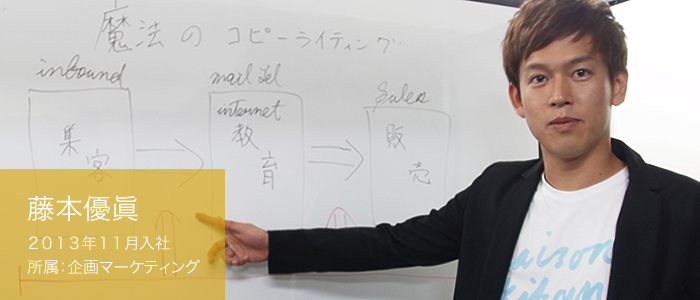 魔法のコピーライティング
inbound
mail tel
Sales
internet
集客
教育
販売
藤本優眞
2013年11月入社
所属：企画マーケティング